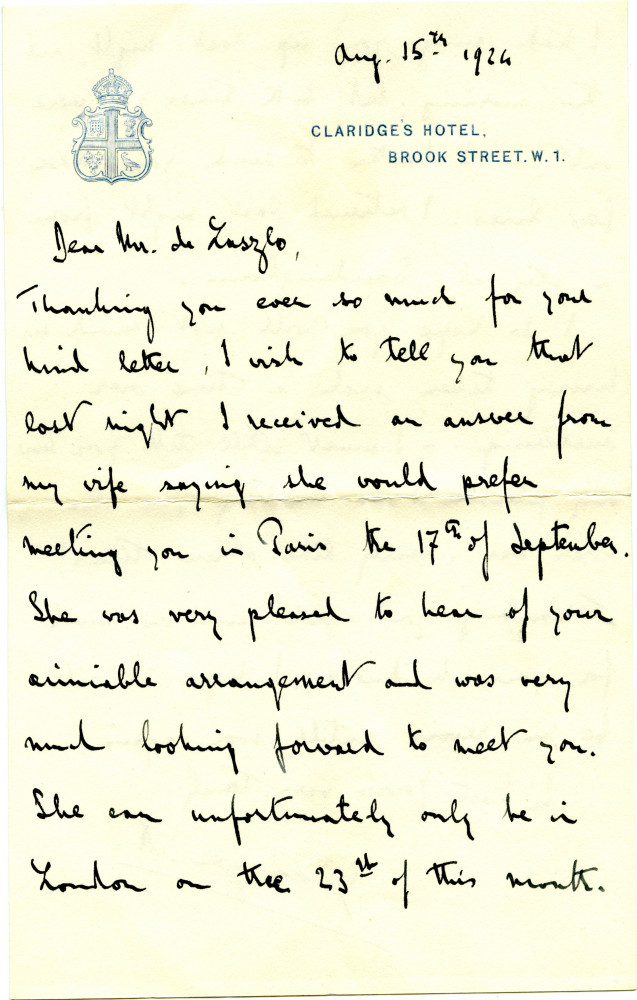 Aug. 15th 1924
CLARIDGE'S HOTEL,
BROOK STREET. W. 1.
Dear Mr. de Laszlo,
Thanking you ever so much for your
kind letter, I wish to tell you that
last night I received an answer from
my wife saying she would prefer
meeting you in Paris the 17th of September.
She was very pleased to hear of your
aimiable arrangement and was very
much looking forward to meet you.
She can unfortunately only be in
London on the 23st of this month.